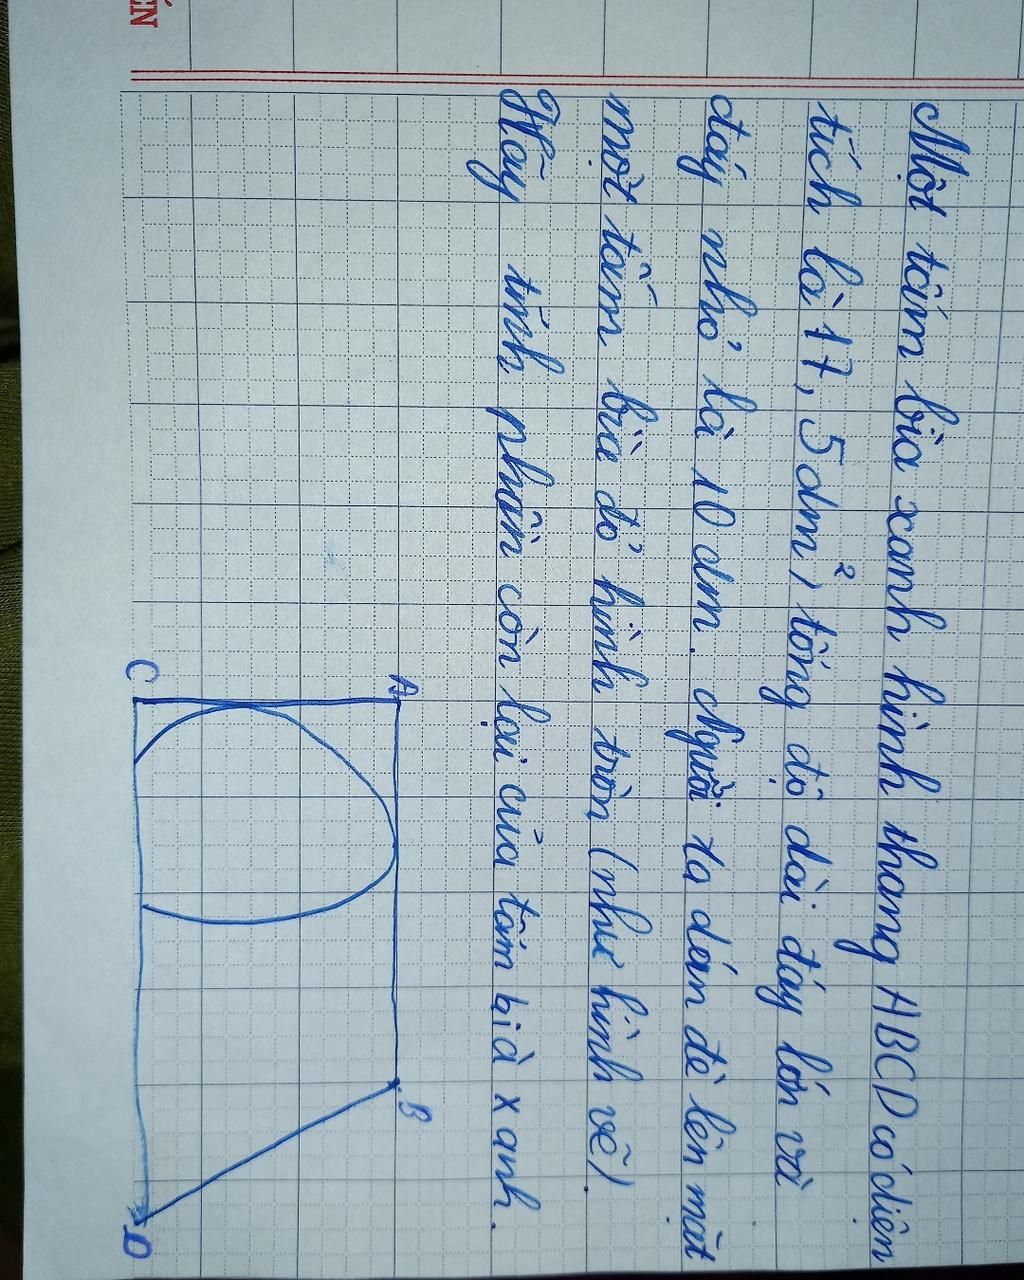 ẾN
Một tấm bìa xanh hình thang ABCD có diện
tích là 17,5dm², tổng độ dài đáy lớn và
đáy nhỏ là 10 dm. Người ta dán đè lên mặt
một tấm bìa đỏ hình tròn (như hình vẽ).
Hãy tính phần còn lại của tấm bìa xanh.
A B
C D